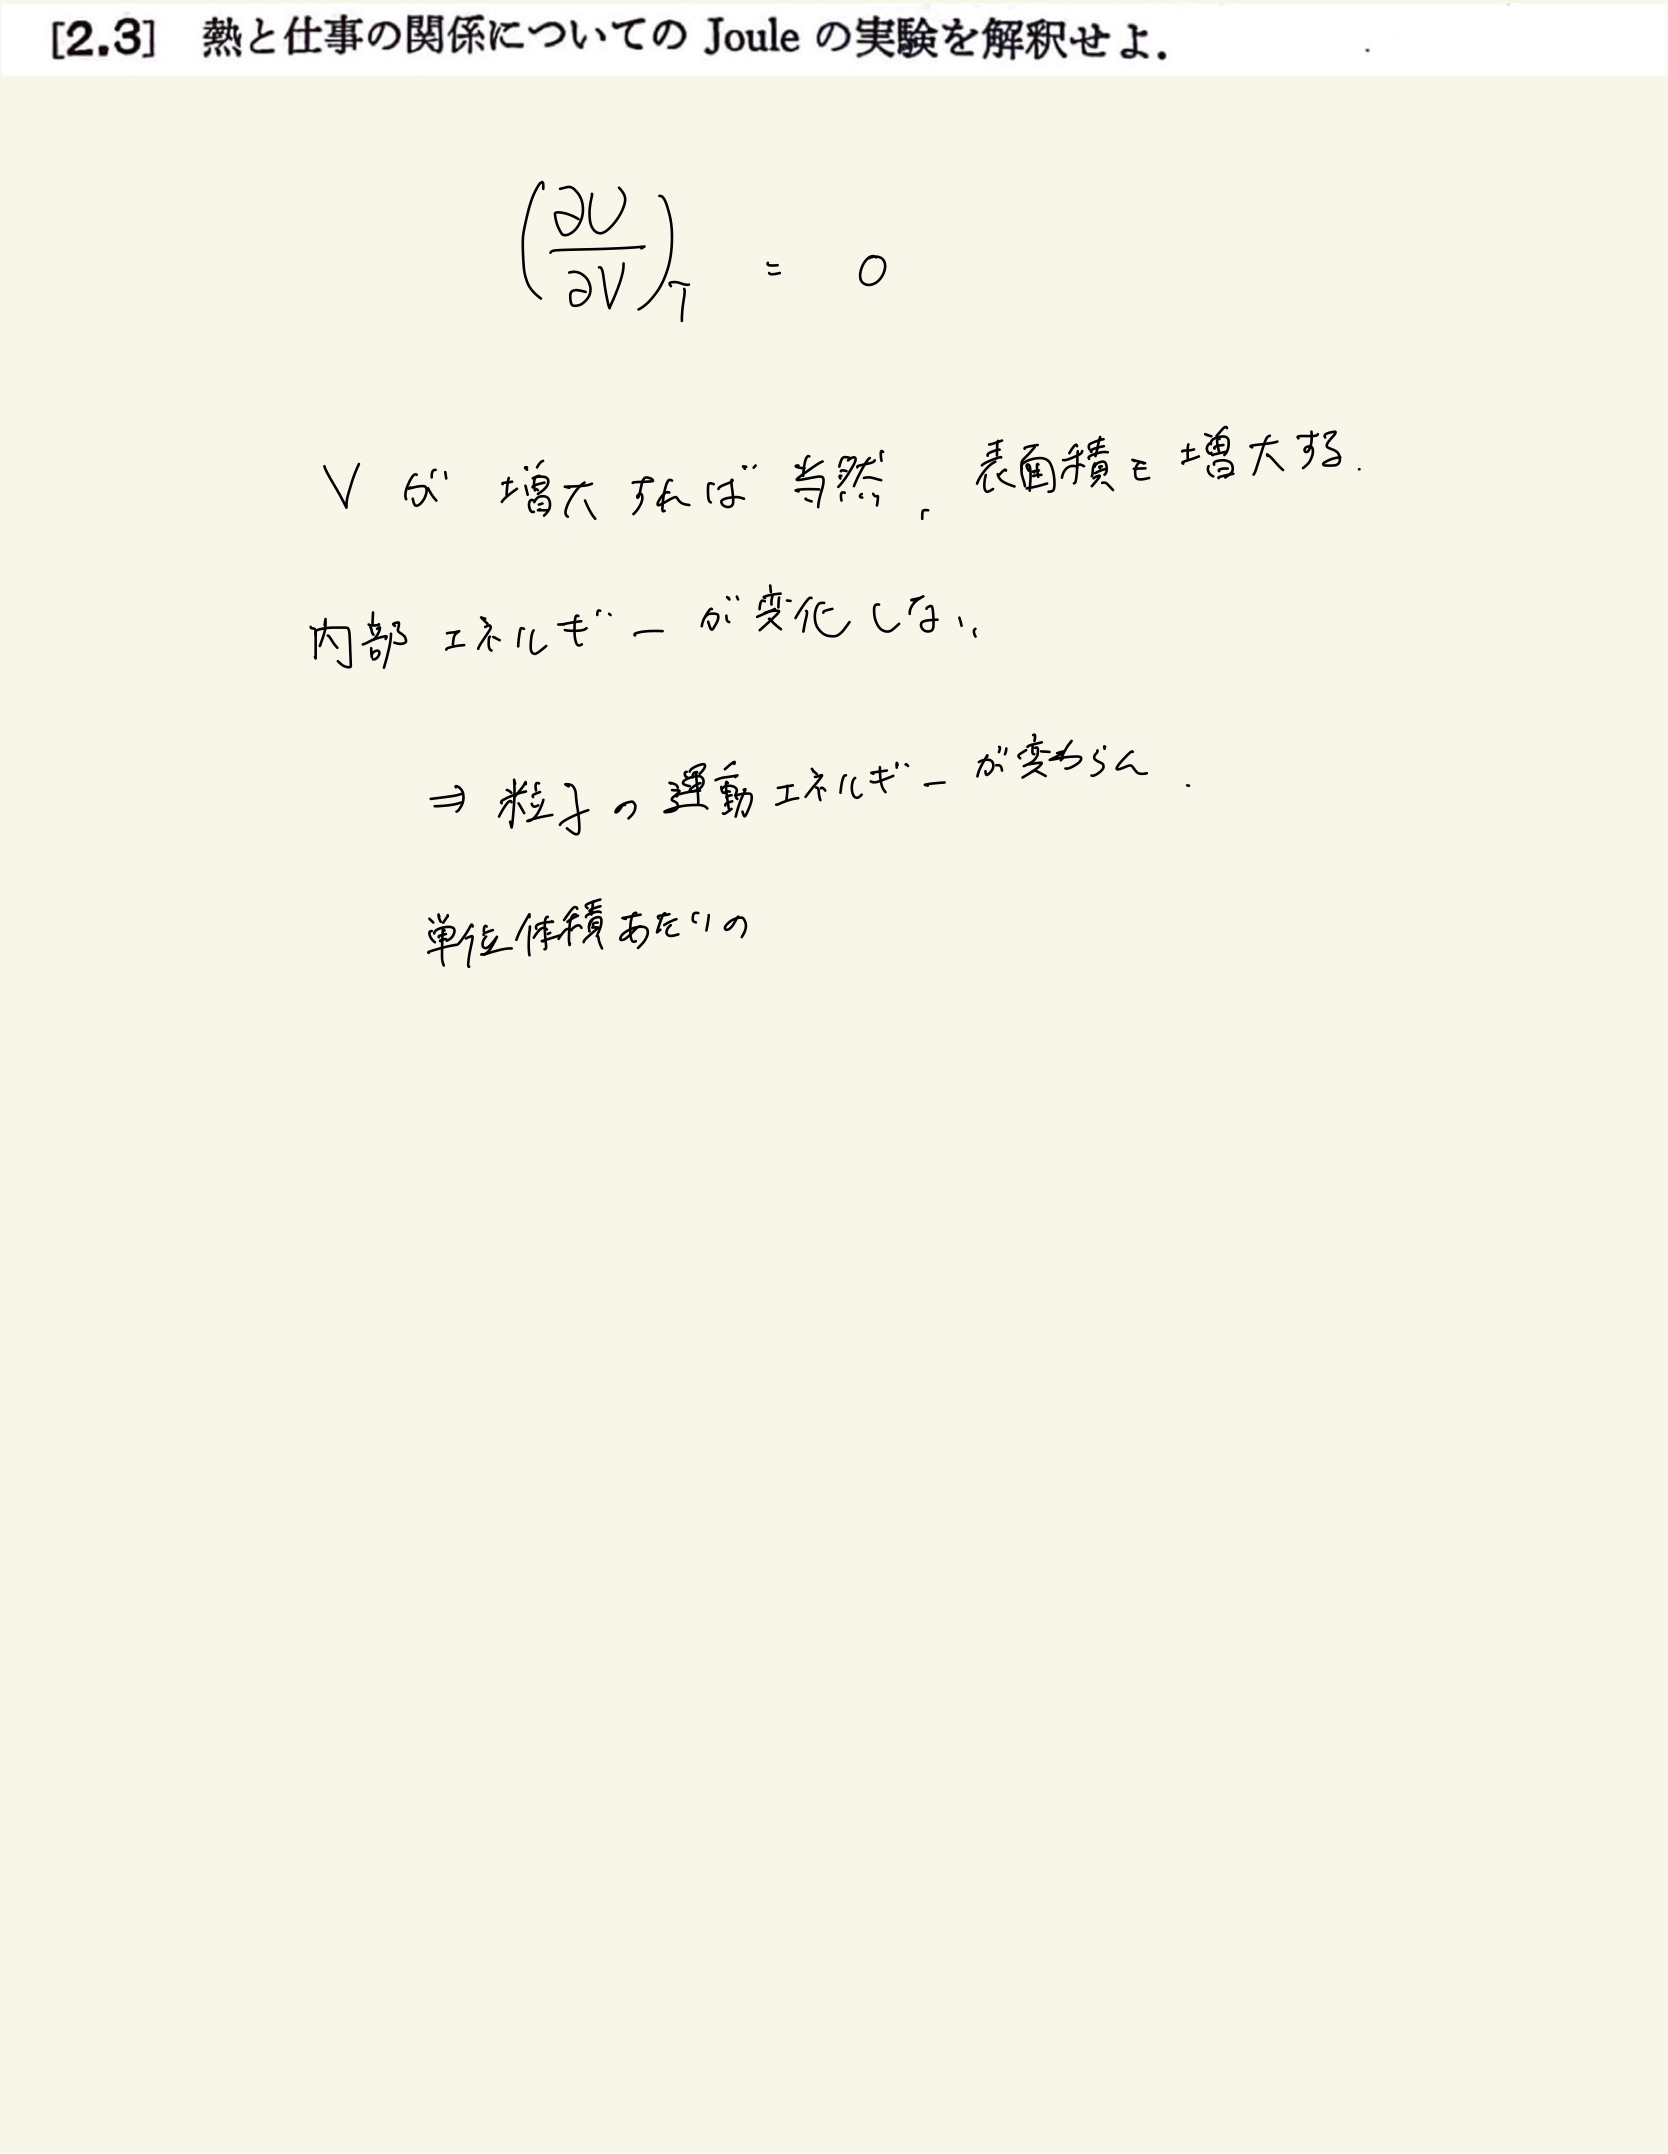 [2.3] 熱と仕事の関係についての Joule の実験を解釈せよ.
(∂U/∂V)_T = 0
V が 増大すれば当然, 表面積も増大する.
内部エネルギーが変化しない
⇒ 粒子の運動エネルギーが変わらん.
単位体積あたりの